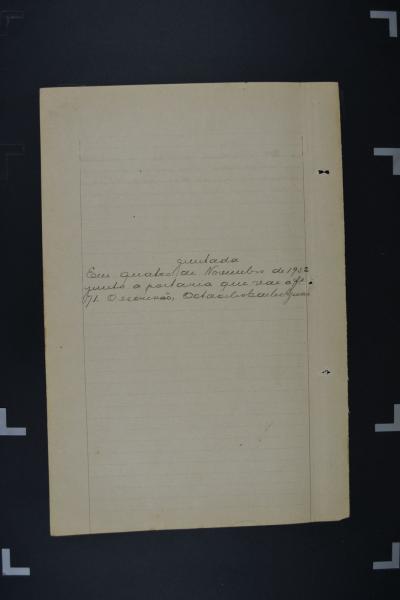 juntada
Em quatro de Novembro de 1902
junto a portaria que vae a fl.
71. O escrivão,